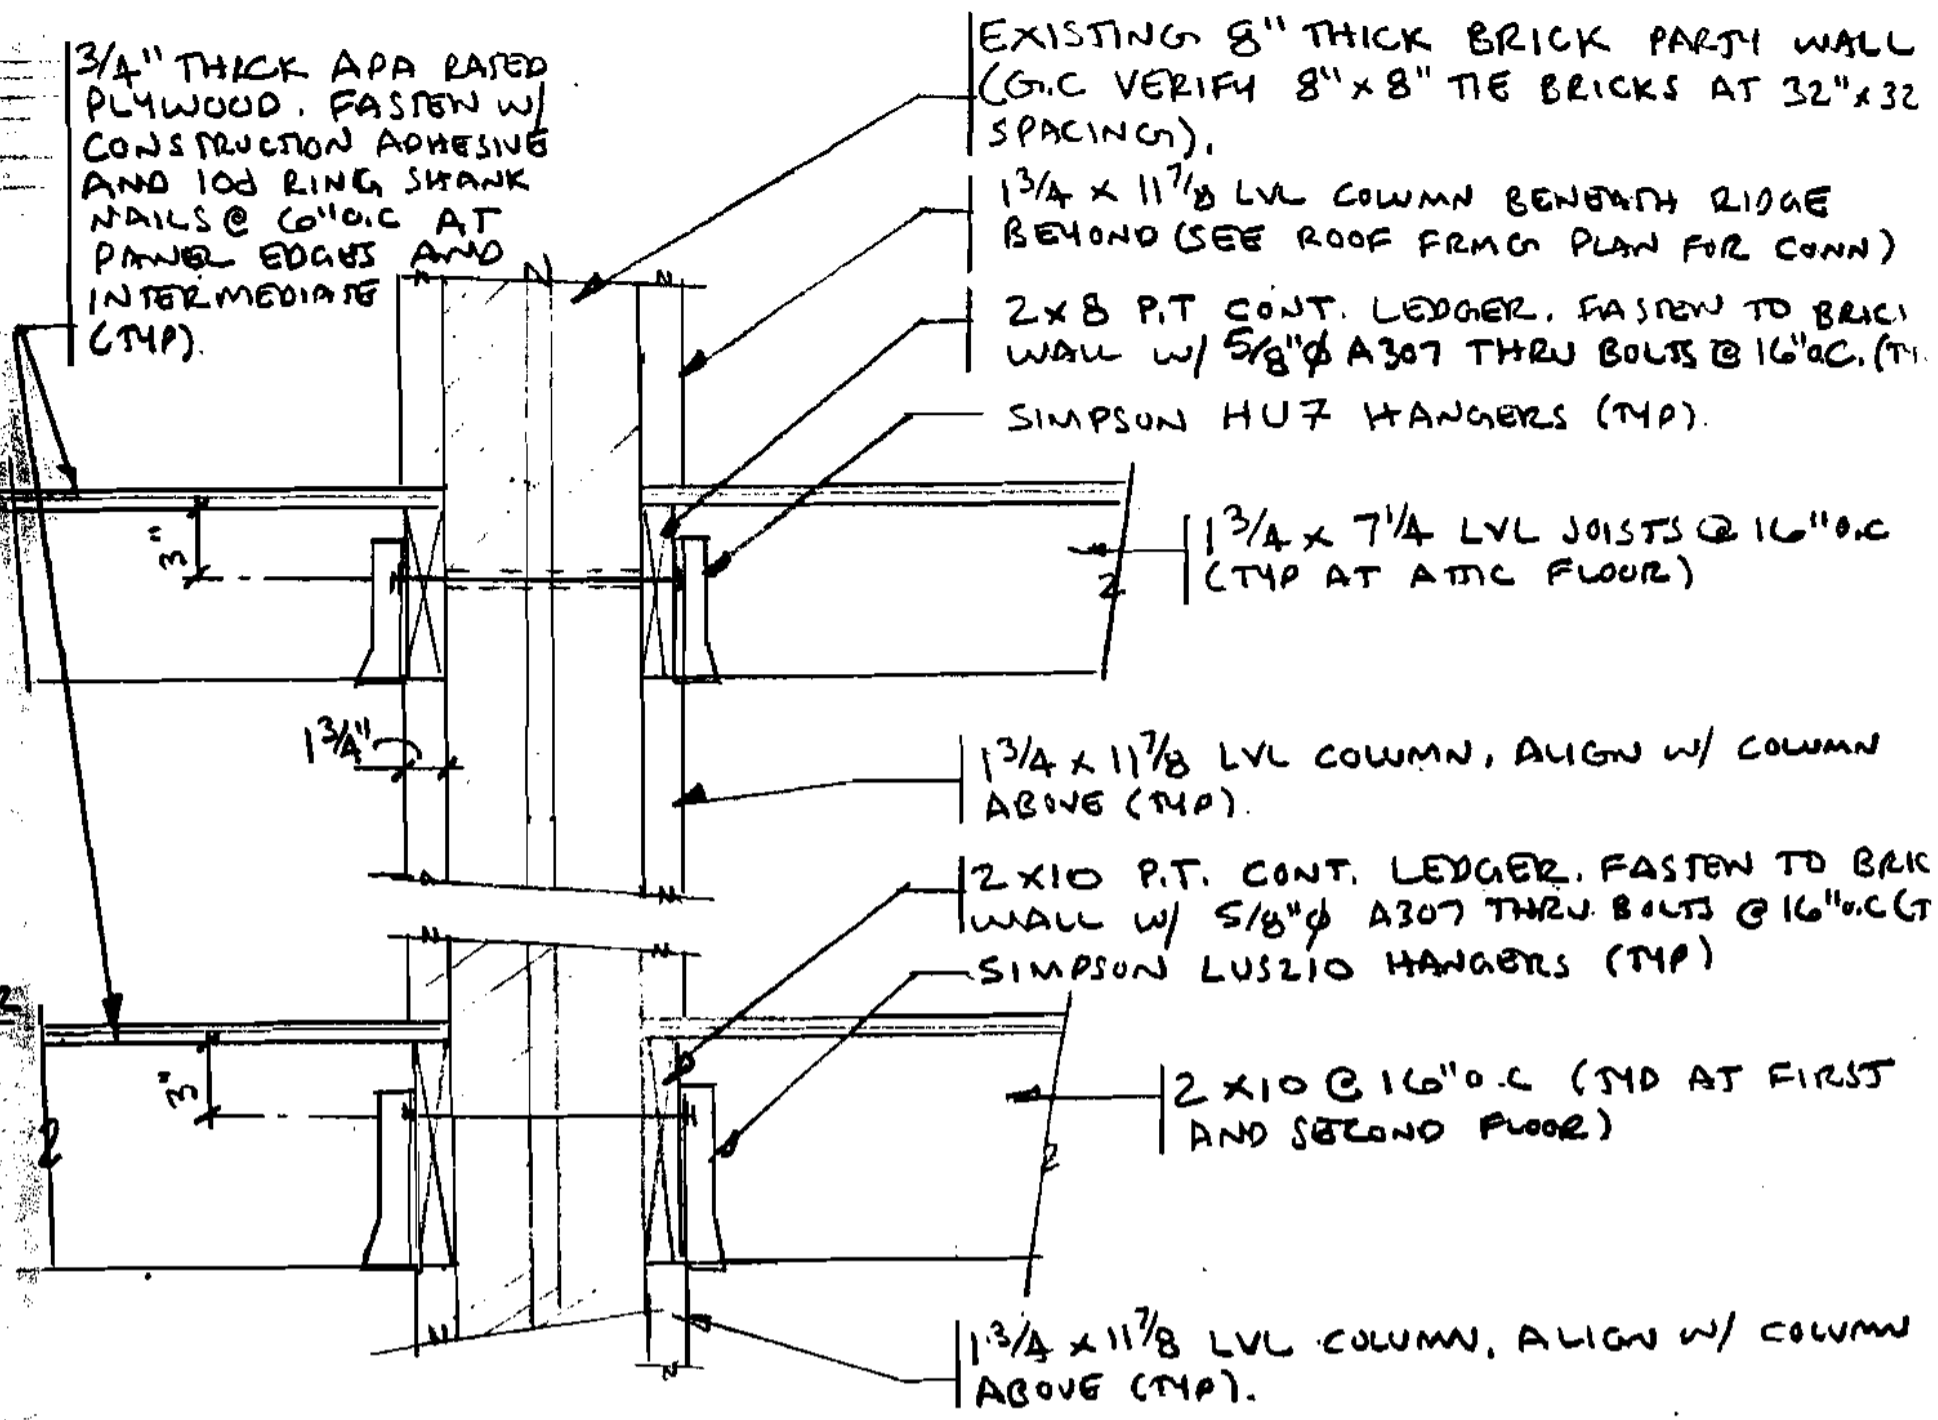 3/4" THICK APA RATED
PLYWOOD. FASTEN W/
CONSTRUCTION ADHESIVE
AND 10d RING SHANK
NAILS @ 6" O.C AT
PANEL EDGES AND
INTERMEDIATE
(TYP).
EXISTING 8" THICK BRICK PARTY WALL
(G.C VERIFY 8" x 8" TIE BRICKS AT 32" x 32
SPACING).
1 3/4 x 11 7/8 LVL COLUMN BENEATH RIDGE
BEYOND (SEE ROOF FRMG PLAN FOR CONN)
2 x 8 P.T CONT. LEDGER. FASTEN TO BRIC
WALL W/ 5/8"φ A307 THRU BOLTS @ 16" O.C. (T
SIMPSON HU7 HANGERS (TYP).
3"
1 3/4 x 7 1/4 LVL JOISTS @ 16" O.C
(TYP AT ATTIC FLOOR)
2
1 3/4"
1 3/4 x 11 7/8 LVL COLUMN, ALIGN W/ COLUMN
ABOVE (TYP).
2 x 10 P.T. CONT. LEDGER. FASTEN TO BRIC
WALL W/ 5/8"φ A307 THRU BOLTS @ 16" O.C (T
SIMPSON LUS210 HANGERS (TYP)
2
3"
2 x 10 @ 16" O.C (TYP AT FIRST
AND SECOND FLOOR)
2
2
1 3/4 x 11 7/8 LVL COLUMN, ALIGN W/ COLUMN
ABOVE (TYP).